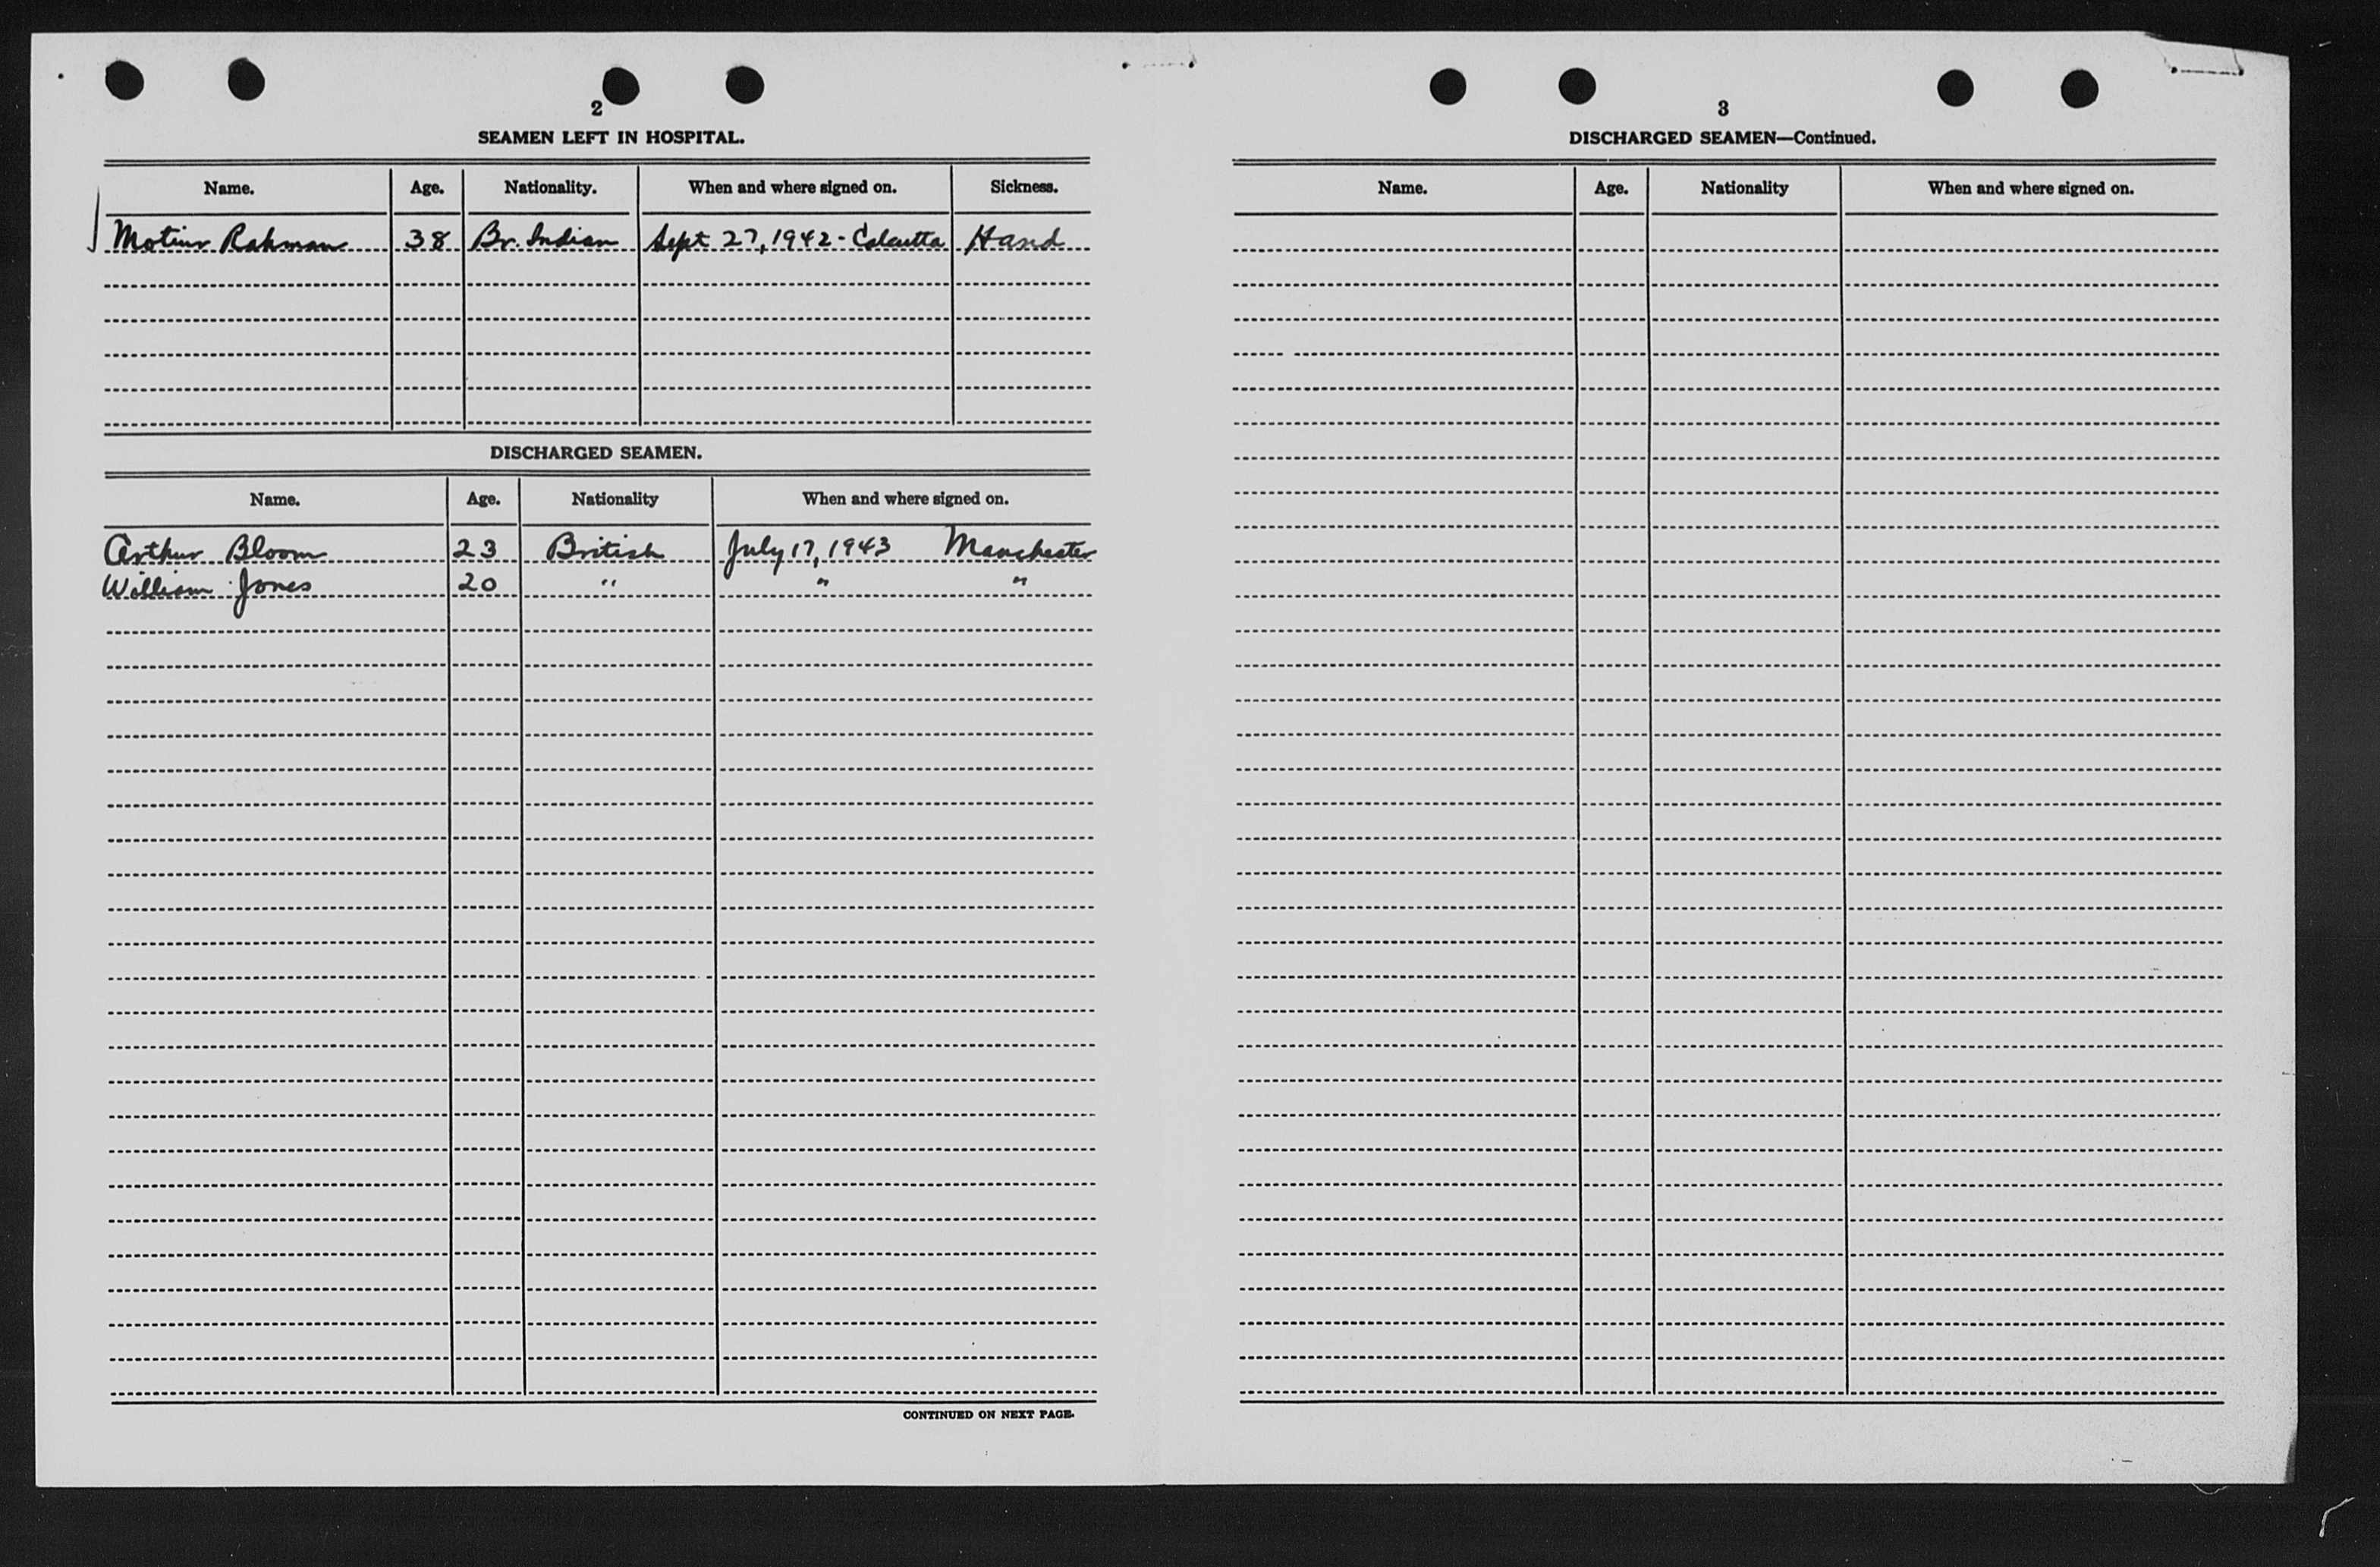 2
SEAMEN LEFT IN HOSPITAL.
Name. Age. Nationality. When and where signed on. Sickness.
Motiur Rahman 38 Br. Indian Sept 27, 1942 - Calcutta Hand
DISCHARGED SEAMEN.
Name. Age. Nationality When and where signed on.
Arthur Bloom 23 British July 17, 1943 Manchester
William Jones 20 " " "
CONTINUED ON NEXT PAGE.
3
DISCHARGED SEAMEN—Continued.
Name. Age. Nationality When and where signed on.